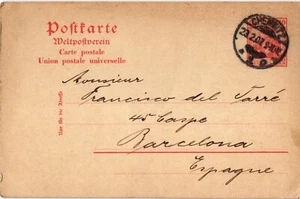 Postkarte
Weltpostverein
Carte postale
Union postale universelle
Monsieur
Francisco del Tarré
45 Caspe
Barcelona
Espagne
Nur für die Adresse